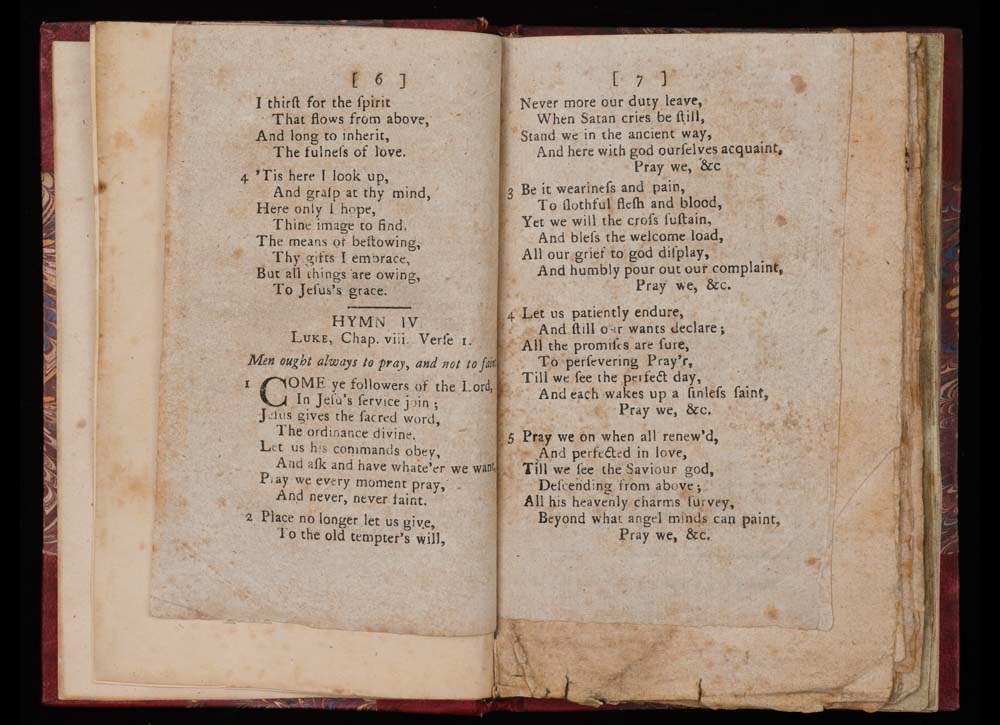 [ 6 ]
I thirſt for the ſpirit
That flows from above,
And long to inherit,
The fulneſs of love.
4 ’Tis here I look up,
And graſp at thy mind,
Here only I hope,
Thine image to find.
The means of beſtowing,
Thy gifts I embrace,
But all things are owing,
To Jeſus's grace.
HYMN IV
LUKE, Chap. viii. Verſe 1.
Men ought always to pray, and not to fain
1 COME ye followers of the Lord,
In Jeſu's ſervice join ;
Jeſus gives the ſacred word,
The ordinance divine.
Let us his commands obey,
And aſk and have whate'er we want,
Pray we every moment pray,
And never, never faint.
2 Place no longer let us give,
To the old tempter's will,
[ 7 ]
Never more our duty leave,
When Satan cries be ſtill,
Stand we in the ancient way,
And here with god ourſelves acquaint,
Pray we, &c
3 Be it wearineſs and pain,
To ſlothful fleſh and blood,
Yet we will the croſs ſuſtain,
And bleſs the welcome load,
All our grief to god diſplay,
And humbly pour out our complaint,
Pray we, &c.
4 Let us patiently endure,
And ſtill our wants declare ;
All the promiſes are ſure,
To perſevering Pray'r,
Till we ſee the perfect day,
And each wakes up a ſinleſs ſaint,
Pray we, &c.
5 Pray we on when all renew'd,
And perfected in love,
Till we ſee the Saviour god,
Deſcending from above ;
All his heavenly charms ſurvey,
Beyond what angel minds can paint,
Pray we, &c.